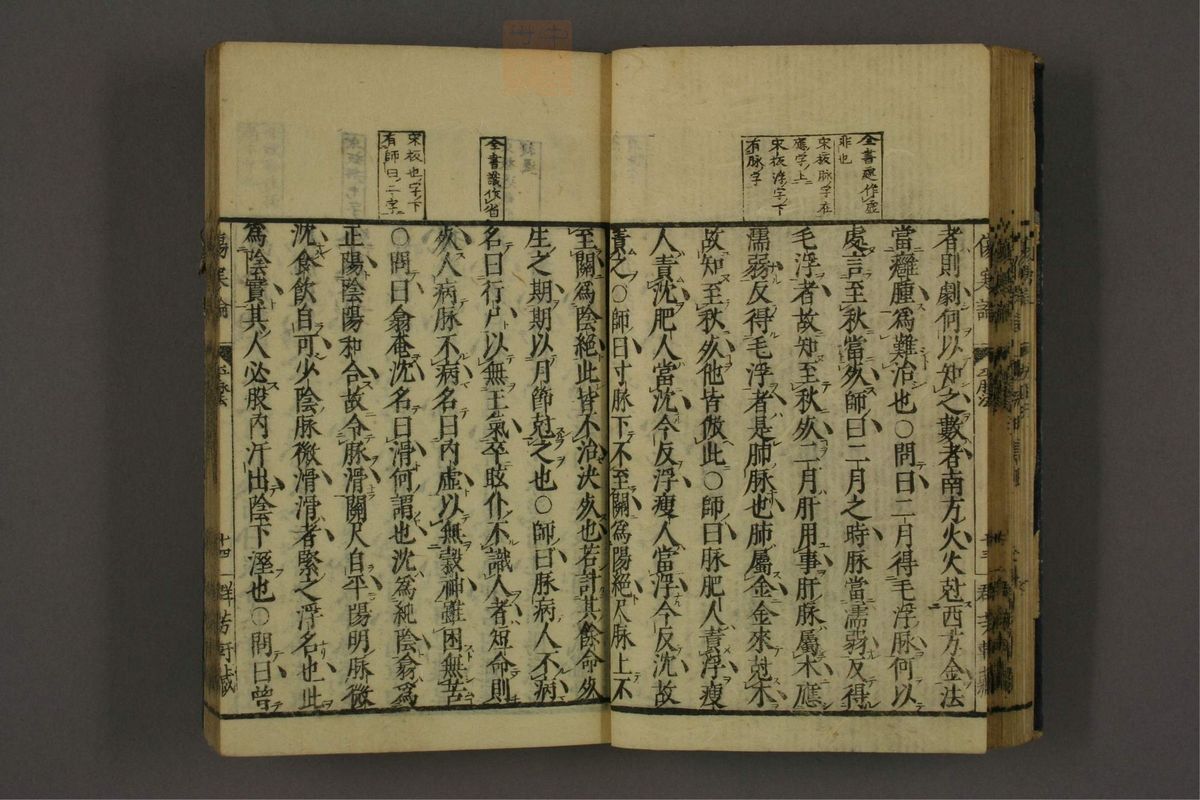 全書遲作遅
非也
宋板脉字在
應字上
宋板浮字下
有脉字
者則劇何以知之數者南方火火尅西方金法
當癰腫爲難治也○問曰二月得毛浮脉何以
處言至秋當死師曰二月之時脉當濡弱反得
毛浮者故知至秋死二月肝用事肝脉屬木應
濡弱反得毛浮者是肺脉也肺屬金金來尅木
故知至秋死他皆倣此○師曰脉肥人責浮瘦
人責沈肥人當沈今反浮瘦人當浮今反沈故
責之○師曰寸脉下不至關爲陽絕尺脉上不
傷寒論 平脉法 十三 群芳軒藏
全書識作省
宋板也字下
有師曰二字
至關爲陰絕此皆不治決死也若計其餘命死
生之期期以月節尅之也○師曰脉病人不病
名曰行尸以無王氣卒眩仆不識人者短命則
死人病脉不病名曰內虛以無穀神雖困無苦
○問曰翕奄沈名曰滑何謂也沈爲純陰翕爲
正陽陰陽和合故令脉滑關尺自平陽明脉微
沈食飲自可少陰脉微滑滑者緊之浮名也此
爲陰實其人必股內汗出陰下溼也○問曰曾
傷寒論 平脉法 十四 群芳軒藏